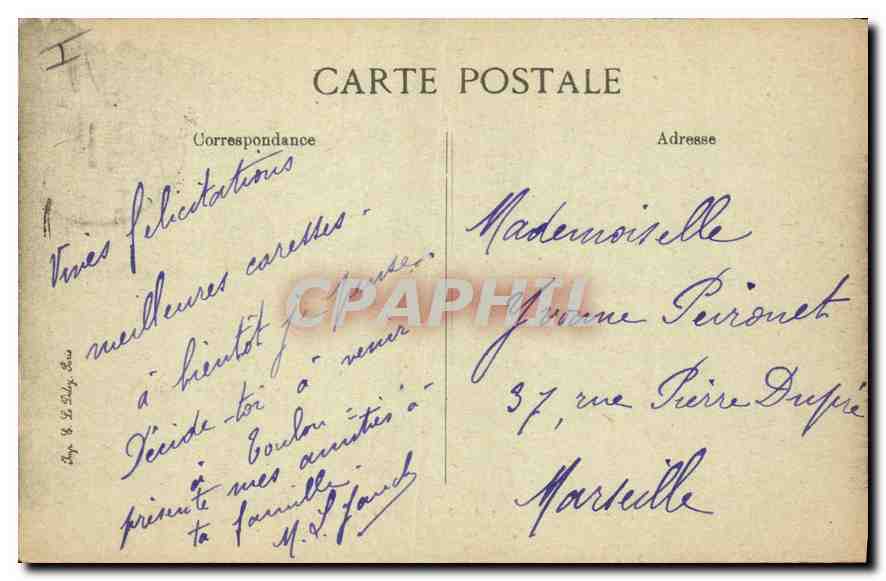 I
CARTE POSTALE
Correspondance
Vives félicitations
meilleures caresses -
à bientôt je pense.
Décide-toi à venir
à Toulon =
présente mes amitiés à
ta famille.
M. L.
Adresse
Mademoiselle
Yvonne Peironet
37, rue Pierre Dupré
Marseille
Imp. E. Le Deley, Paris
CPAPHIL